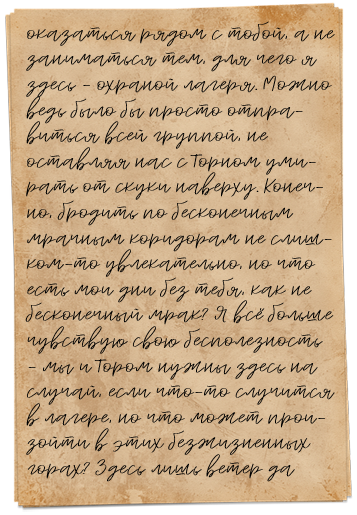 оказаться рядом с тобой, а не
заниматься тем, для чего я
здесь - охраной лагеря. Можно
ведь было бы просто отпра-
виться всей группой, не
оставляя нас с Торном уми-
рать от скуки наверху. Конеч-
но, бродить по бесконечным
мрачным коридорам не слиш-
ком-то увлекательно, но что
есть мои дни без тебя, как не
бесконечный мрак? Я всё больше
чувствую свою бесполезность
- мы и Тором нужны здесь на
случай, если что-то случится
в лагере, но что может прои-
зойти в этих безжизненных
горах? Здесь лишь ветер да